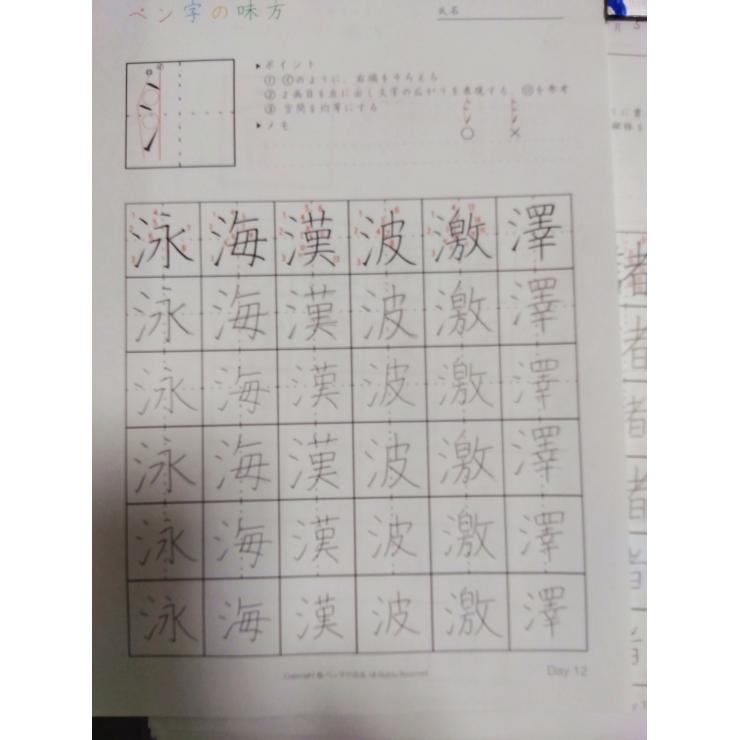 ペン字の味方
氏名
ポイント
① ⓐのように、右端をそろえる
② 2画目を左に出し文字の広がりを表現する。ⓑを参考
③ 空間を均等にする
メモ
○ ×
泳 海 漢 波 激 澤
泳 海 漢 波 激 澤
泳 海 漢 波 激 澤
泳 海 漢 波 激 澤
泳 海 漢 波 激 澤
泳 海 漢 波 激 澤
Copyright © ペン字の味方 All Rights Reserved.
Day 12
者
者
者
者